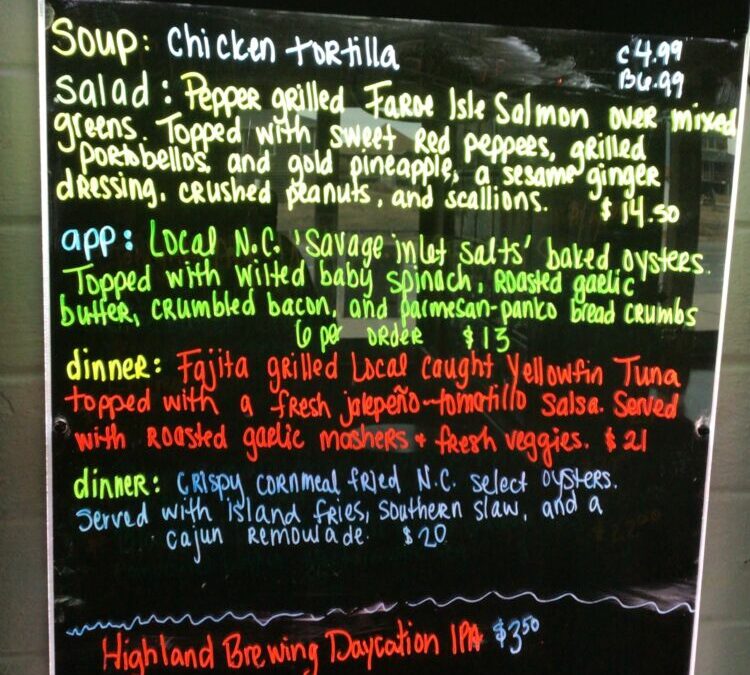 Soup: Chicken Tortilla C 4.99
B 6.99
Salad: Pepper grilled Faroe Isle Salmon over mixed
greens. Topped with sweet Red peppers, grilled
portobellos, and gold pineapple, a sesame ginger
dressing, crushed peanuts, and scallions. $14.50
app: Local N.C. 'Savage inlet salts' baked oysters.
Topped with wilted baby spinach, Roasted garlic
butter, crumbled bacon, and parmesan-panko bread crumbs
6 per order $13
dinner: Fajita grilled Local caught Yellowfin Tuna
topped with a fresh jalepeño-tomatillo Salsa. Served
with Roasted garlic mashers + fresh veggies. $21
dinner: Crispy cornmeal fried N.C. select oysters.
Served with island fries, southern slaw, and a
cajun remoulade. $20
Highland Brewing Daycation IPA $3.50